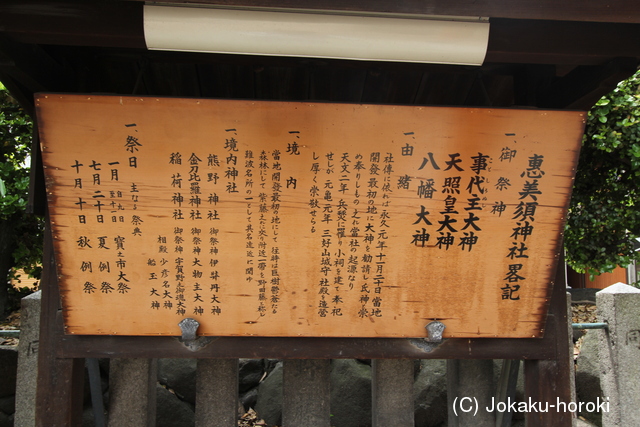 恵美須神社畧記
一、御祭神
事代主大神
天照皇大神
八幡大神
一、由緒
社傳に依れば永久元年十一月二十日當地
開發最初の地に大神を勧請し氏神と崇
め奉りしもの之れ當社の起源なり
天文二年 兵燹に罹り小祠を建て奉祀
せしが元亀元年 三好山城守社殿を造営
し厚く崇敬せらる
一、境内
當地開發最初の地にして往時は巨樹鬱蒼たる
森林にして紫藤之に
一、境内神社
熊野神社 御祭神 伊弉冉大神
金刀比羅神社 御祭神 大物主大神
稲荷神社 御祭神 宇賀野御魂大神
相殿 少彦名大神
船玉大神
一、祭日 主なる祭典
一月 自九日 至十一日 寶之市大祭
七月二十日 夏例祭
十月十日 秋例祭
(C) Jokaku-horoki